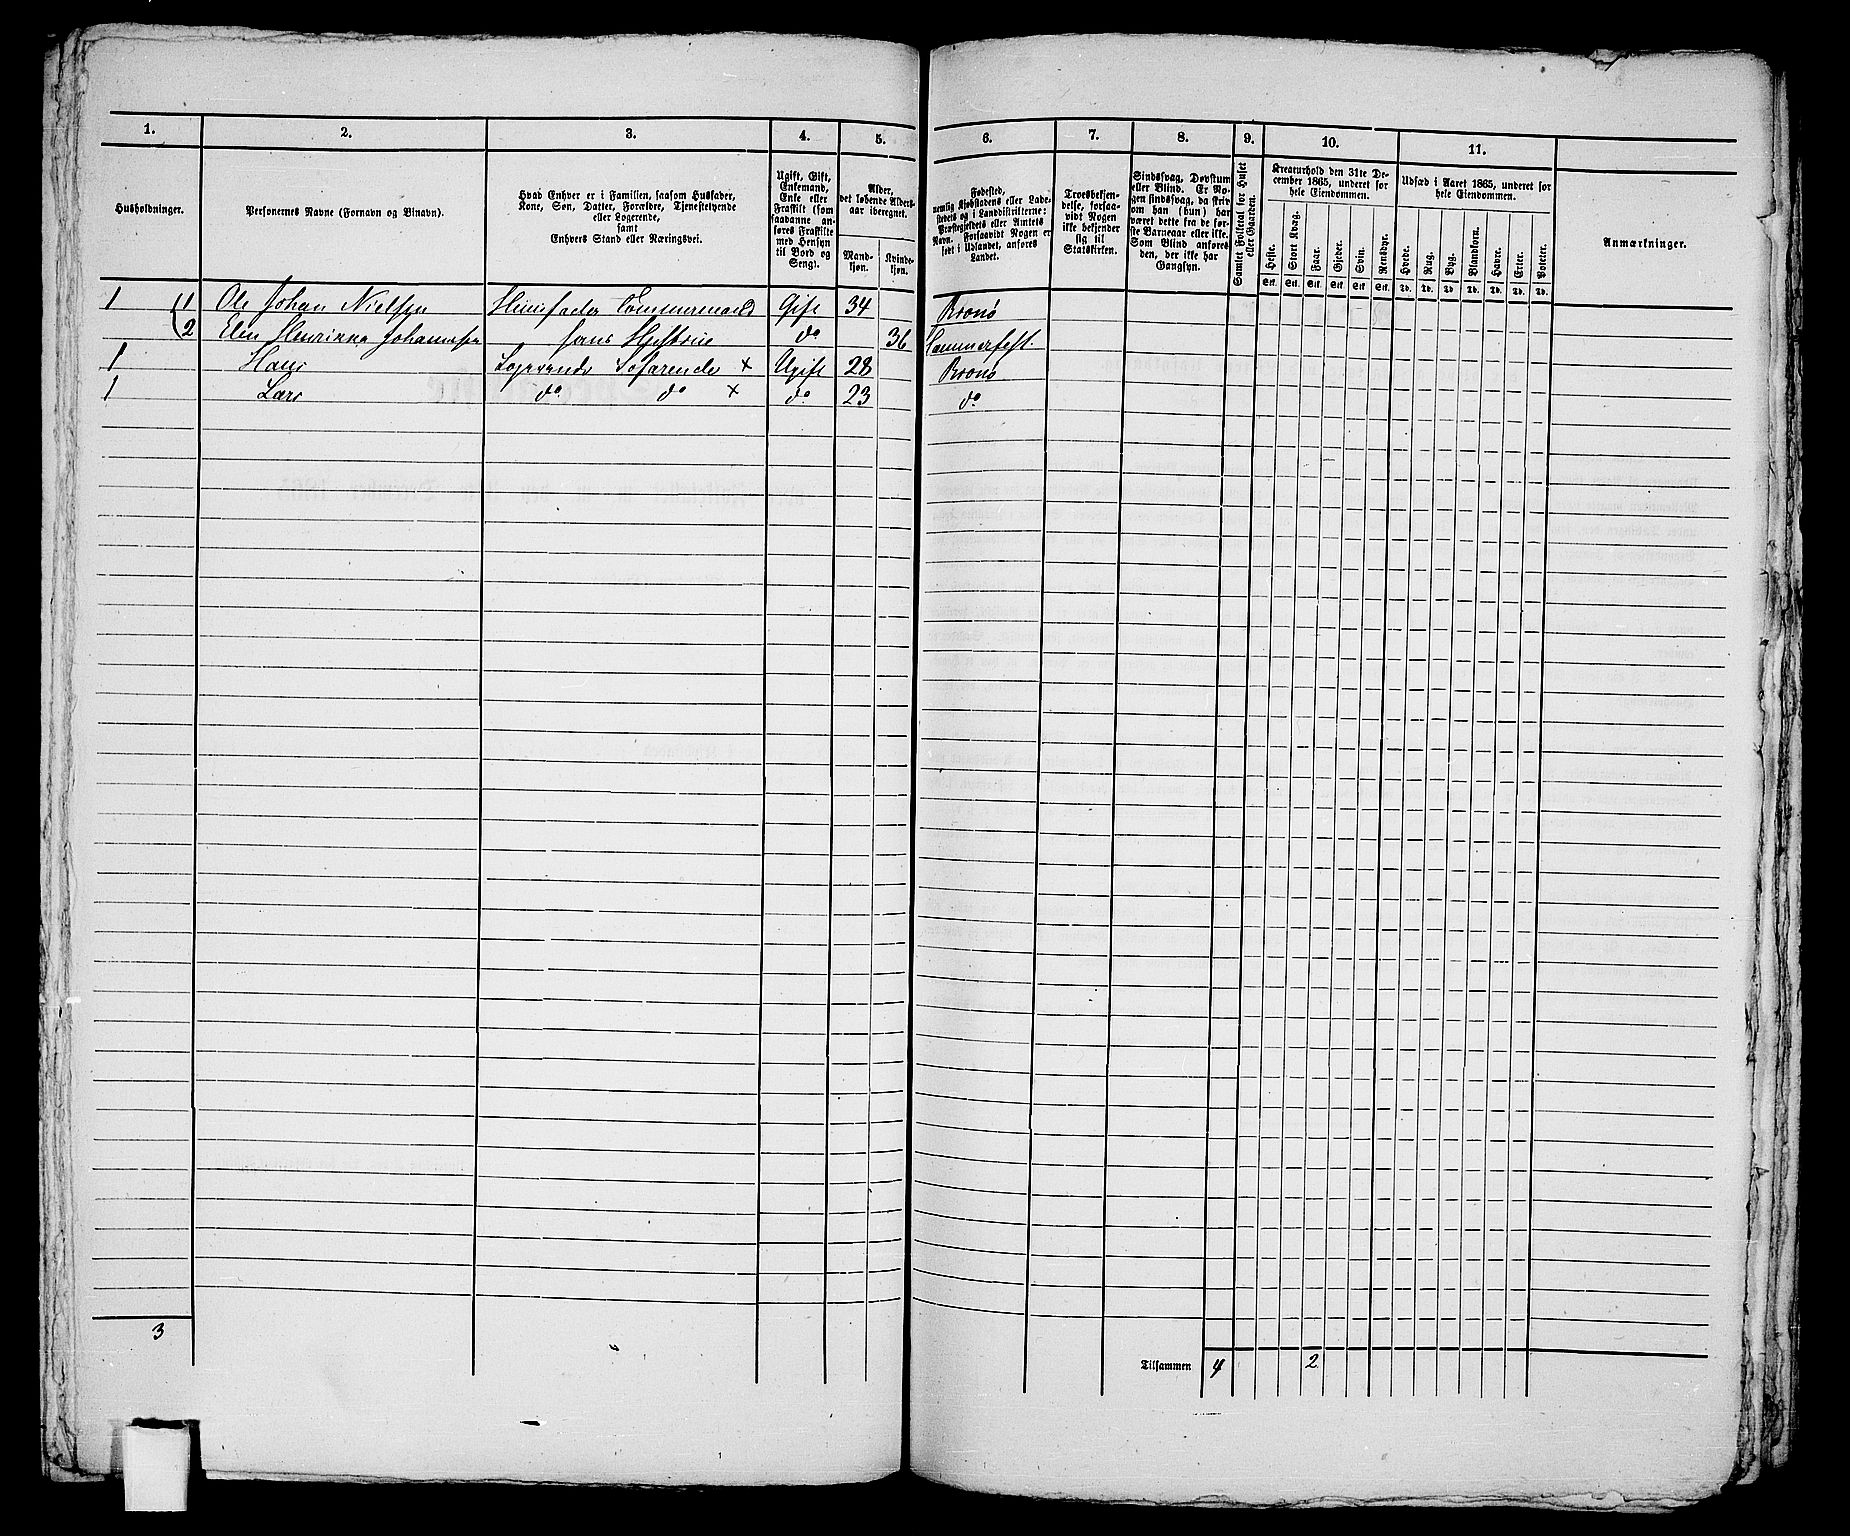 1. 2. 3. 4. 5. 6. 7. 8. 9. 10. 11.
Husholdninger.
Personernes Navne (Fornavn og Binavn).
Hvad Enhver er i Familien, saasom Husfader,
Kone, Søn, Datter, Forældre, Tjenestetyende
eller Logerende,
samt
Enhvers Stand eller Næringsvei.
Ugift, Gift,
Enkemand,
Enke eller
Fraskilt (som
saadanne an-
føres Fraskilte
med Hensyn
til Bord og
Seng).
Alder,
det løbende Alders-
aar iberegnet.
Mand-
kjøn.
Kvinde-
kjøn.
Fødested,
nemlig Kjøbstadens eller Lade-
stedets og i Landdistrikterne:
Præstegjeldets eller Amtets
Navn. Forsaavidt Nogen er
født i Udlandet, anføres
Landet.
Troesbekjen-
delse, forsaa-
vidt Nogen
ikke bekjender
sig til
Statskirken.
Sindssvag, Døvstum
eller Blind. Er No-
gen sindssvag, da skriv
om han (hun) har
været dette fra de før-
ste Barneaar eller ikke.
Som Blind anføres
den, der ikke har
Gangsyn.
Samlet Folketal for Huset
eller Gaarden.
Kreaturhold den 31te De-
cember 1865, underet for
hele Eiendommen.
Heste. Stort Kvæg. Faar. Gjeder. Svin. Rensdyr.
Stk. Stk. Stk. Stk. Stk. Stk.
Udsæd i Aaret 1865, underet for
hele Eiendommen.
Hvede. Rug. Byg. Blandkorn. Havre. Erter. Poteter.
Td. Td. Td. Td. Td. Td. Td.
Anmærkninger.
1 1 Ole Johan Nielsen Huusfader Tømmermand Gift 34 Brønø
2 Elen Henrikka Johannesen hans Huustrue do 36 Hammerfest
1 Hans Logerende Søfarende × Ugift 28 Brønø
1 Lars do do × do 23 do
3
Tilsammen 4 2